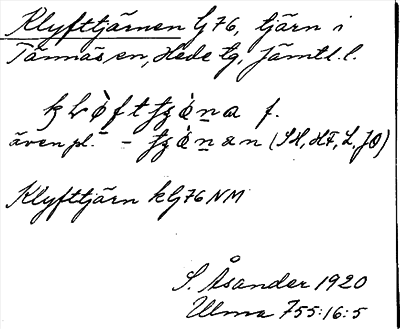 Klyfttjärnen G76, tjärn i
Tännäs sn, Hede tg, Jämtl. l.
f.
även pl. (SH, HF, L, JO)
Klyfttjärn kG76 NM
S. Åsander 1920
Ulma 755:16:5